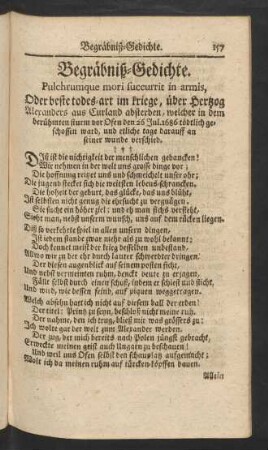 Begräbniß-Gedichte. 157
Begräbniß-Gedichte.
Pulchrumque mori succurrit in armis,
Oder beste todes-art im kriege, über Hertzog
Alexanders aus Curland absterben, welcher in dem
berühmten sturm vor Ofen den 26 Jul. 1686 tödtlich ge-
schossen ward, und etliche tage darauf an
seiner wunde verschied.
Diß ist die nichtigkeit der menschlichen gedancken!
Wir nehmen in der welt uns grosse dinge vor;
Die hoffnung reitzt uns und schmeichelt unser ohr;
Die jugend stecket sich die weitsten lebens-schrancken,
Die hoheit der geburt, das glücke, und das blut,
Ist selbsten nicht genung die ehrsucht zu vergnügen:
Sie sucht ein höher ziel; und eh man sichs versieht,
Sieht man, nebst unserm wunsch, uns auf dem rücken liegen.
Diß ist verkehrte spiel in allen unsern dingen,
Ist iedem stande zwar mehr als zu wohl bekannt;
Doch kennet mans der krieg desselben unbestand,
Wo wir zu der ehr durch lauter schwerdter dringen.
Der diesen augenblick auf seinem posten sicht,
Und nebst vermeintem ruhm, denckt beute zu erjagen,
Fällt selbst durch einen schuß, indem er schiest und sticht,
Und wird, wie dessen feind, auf piquen weggetragen.
Welch absehn hatt ich nicht auf diesem ball der erden!
Der titel: Printz zu seyn, beschloß nicht meine ruh.
Der nahme, den ich trug, bließ mir was grössers zu;
Ich wolte gar der welt zum Alexander werden.
Der zug, der mich bereits nach Polen jüngst gebracht,
Erweckte meinen geist auch Ungarn zu beschauen!
Und weil uns Ofen selbst den schauplatz aufgemacht;
Wolt ich da meinen ruhm auf türcken-köpffen bauen.
Allein